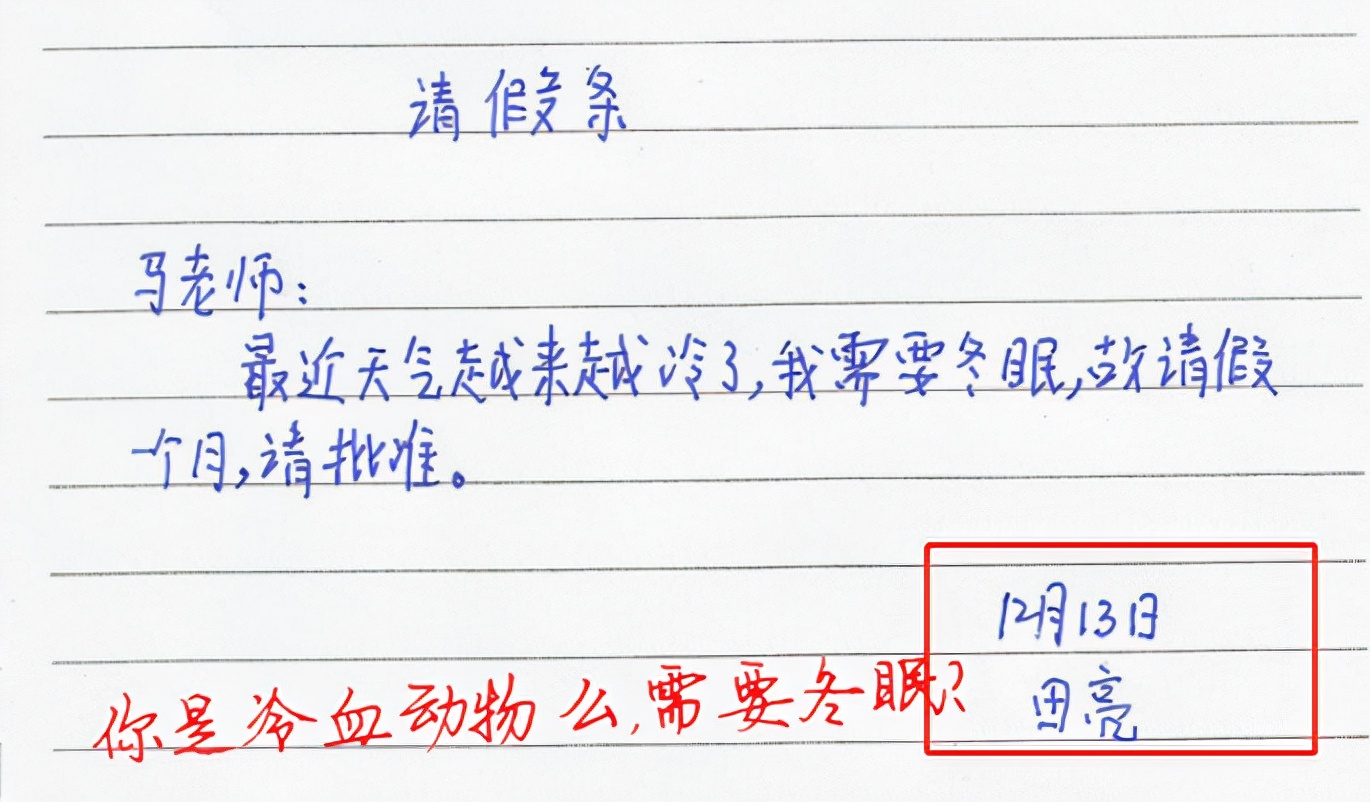 请假条
马老师:
最近天气越来越冷了,我需要冬眠,故请假
一个月,请批准。
12月13日
你是冷血动物么,需要冬眠?
田亮